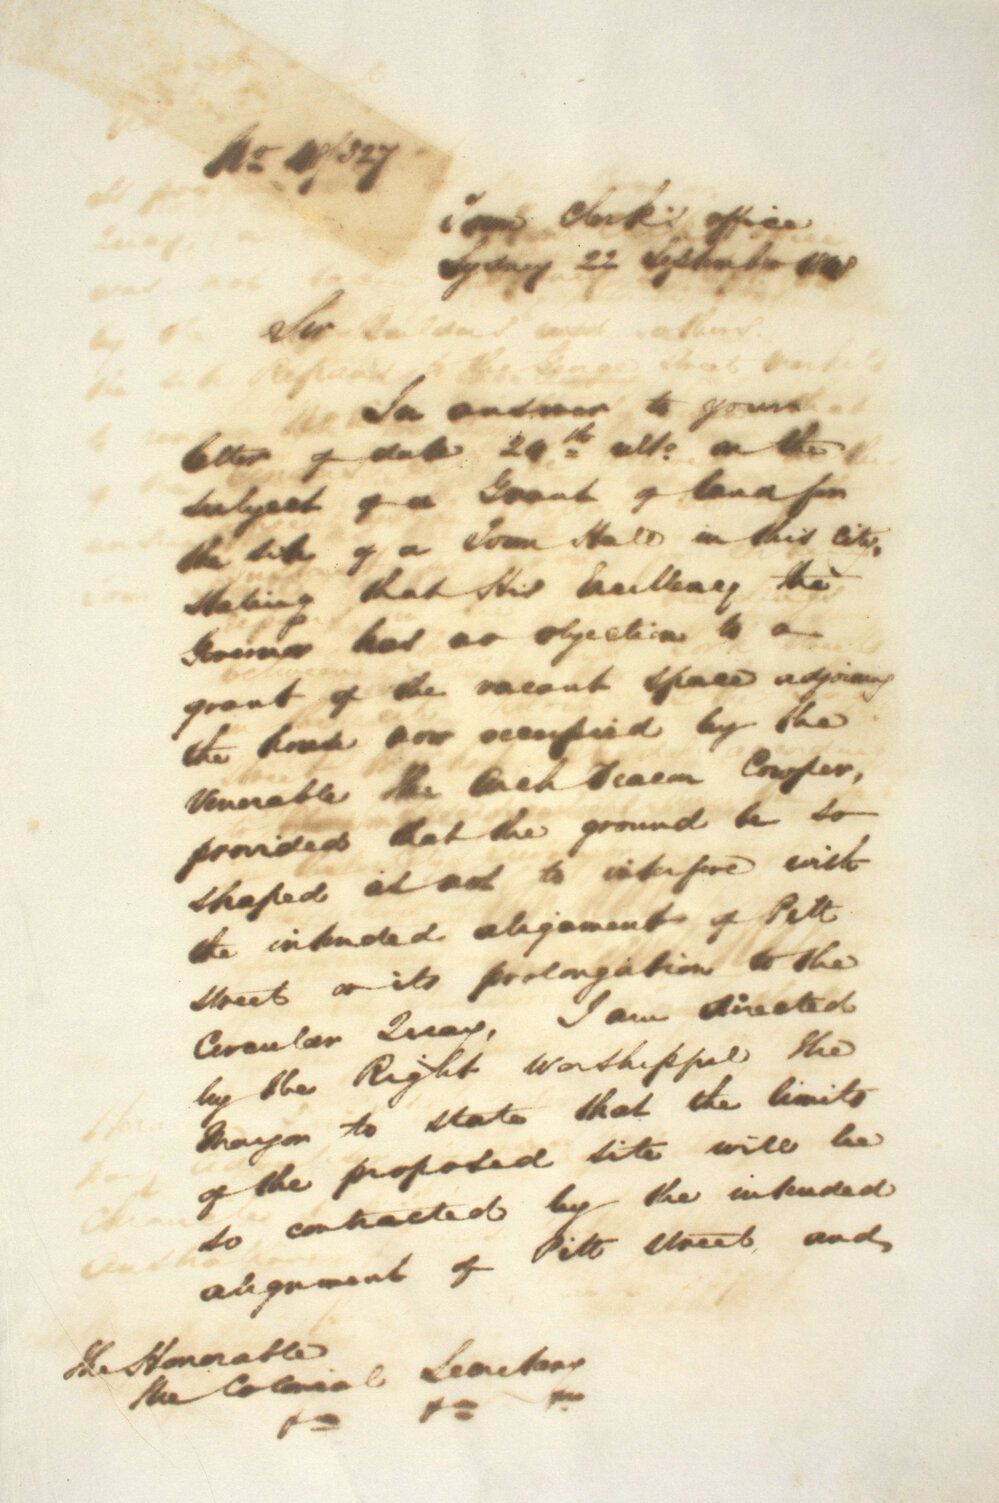 No 48/327
Town Clerk's office
Sydney 22 September 1848
Sir
In answer to yours
letter of date 29th ulto on the
subject of a Grant of land for
the site of a Town Hall in this City,
stating that His Excellency the
Governor has no objection to a
grant of the vacant space adjoining
the house now occupied by the
Venerable the Arch Deacon Cowper,
provided that the ground be so
shaped as not to interfere with
the intended alignment of Pitt
street or its prolongation to the
Circular Quay, I am directed
by the Right Worshipful the
Mayor to state that the limits
of the proposed site will be
so contracted by the intended
alignment of Pitt street and
The Honorable
the Colonial Secretary